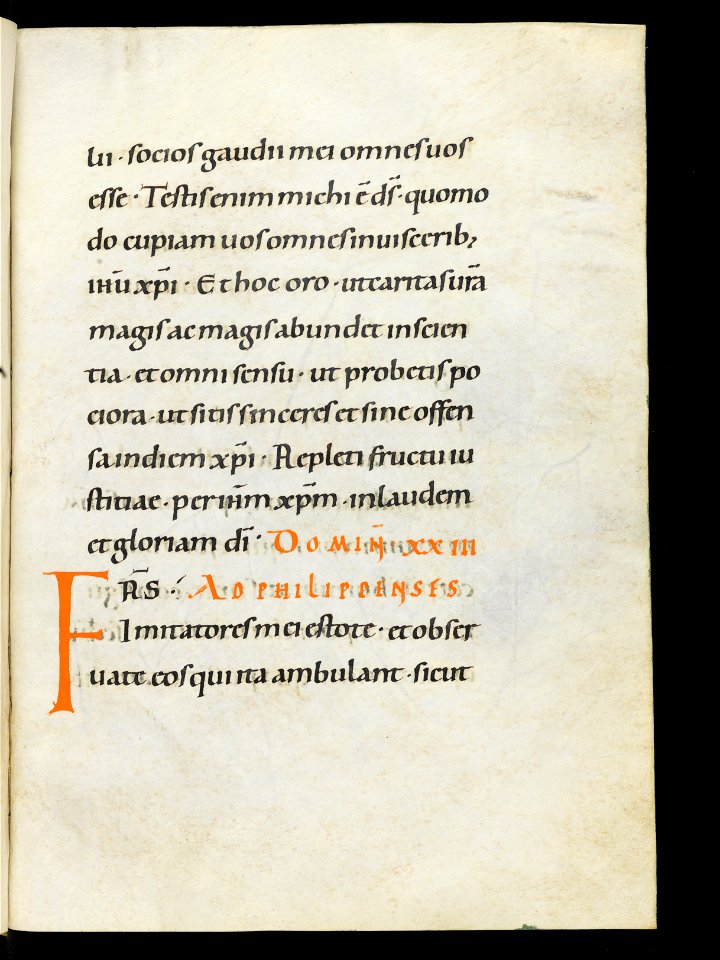 lii · socios gaudii mei omnes uos
esse · Testis enim michi ē ds̄ · quomo
do cupiam uos omnes in uisceribꝫ
ihū xp̄i · Et hoc oro · ut caritas urā
magis ac magis abundet in scien
tia · et omni sensu · ut probetis po
ciora · ut sitis sinceres et sine offen
sa in diem xp̄i · Repleti fructu iu
stitiae · per ihm̄ xp̄m · in laudem
et gloriam dī · DOMIN̄ · XXIII
FRS̄ · AD PHILIPPENSES
Imitatores mei estote · et obser
uate eos qui ita ambulant · sicut